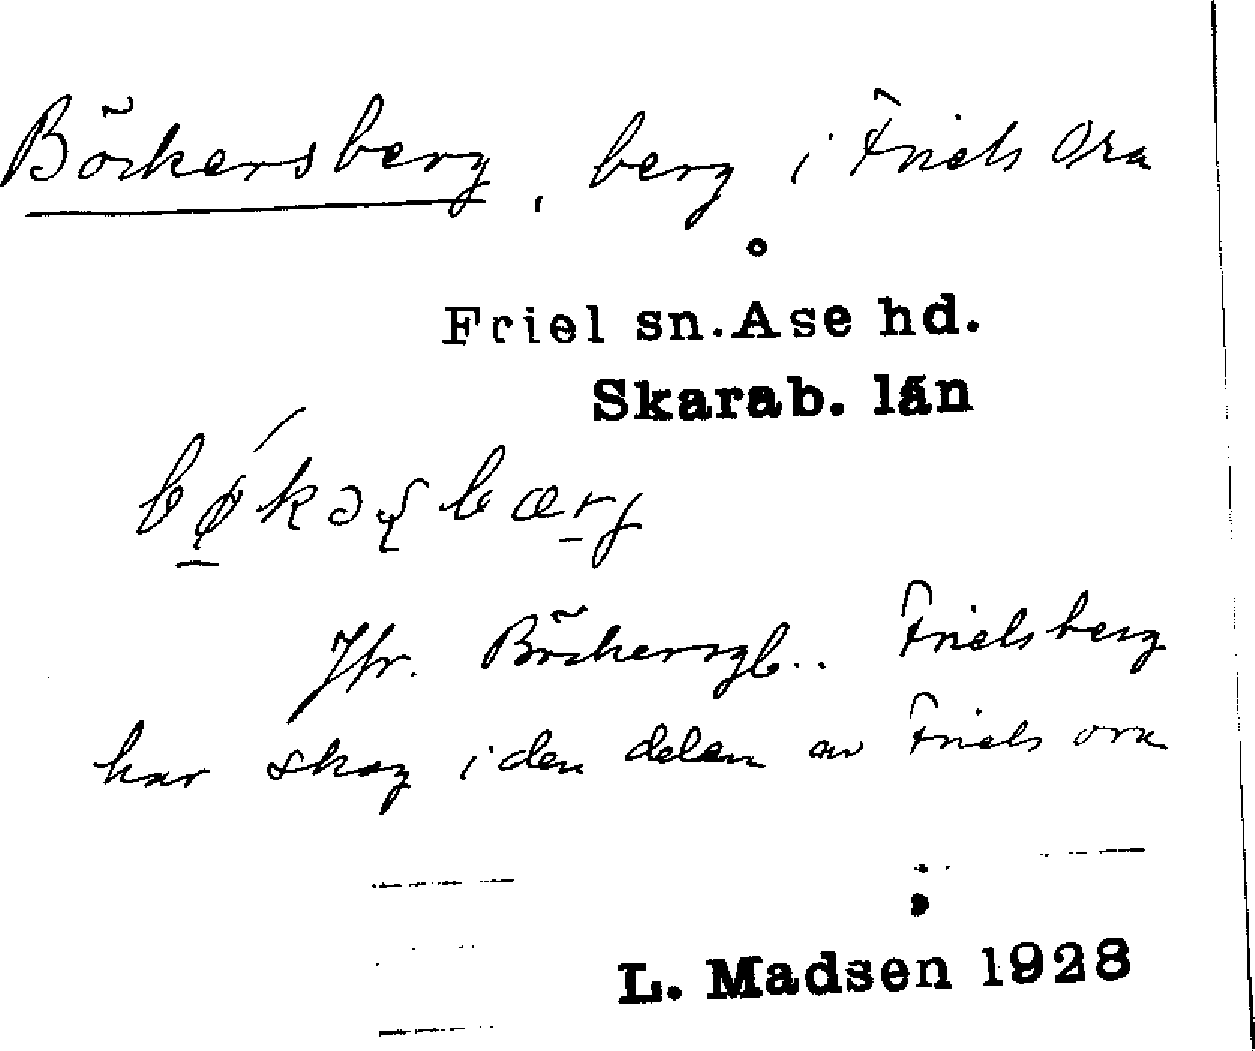 Böckersberg, berg i Friels Ora
Friel sn. Åse hd.
Skarab. län
bǿ̱kəʂbæ̱rj
Jfr. Böckersgb.. Frielsberg
har skog i den delen av Friels ora
L. Madsen 1928